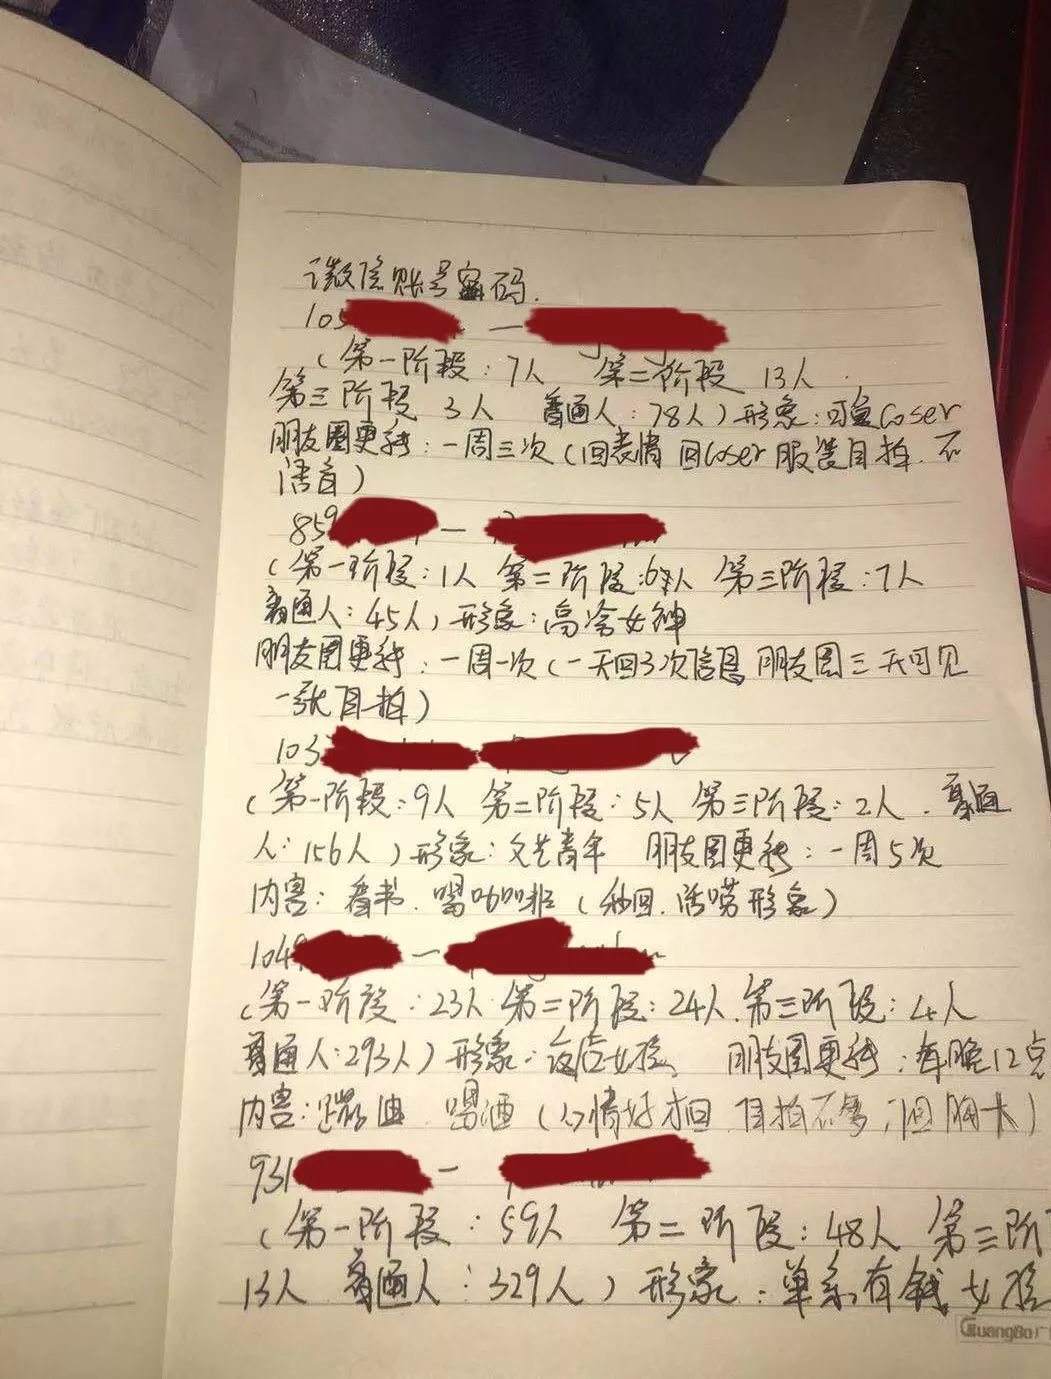 微信账号密码.
105 —
(第一阶段:7人 第二阶段 13人.
第三阶段 3人 普通人:78人)形象:可爱Coser
朋友圈更新:一周三次(回表情 回Coser服装自拍.不
语音)
859 —
(第一阶段:1人 第二阶段: 人 第三阶段:7人
普通人:45人)形象:高冷女神
朋友圈更新:一周一次(一天回3次信息 朋友圈三天可见
一张自拍)
103
(第一阶段:9人 第二阶段:5人 第三阶段:2人.普通
人:156人)形象:文艺青年 朋友圈更新:一周5次
内容:看书.喝咖啡(秒回.话唠形象)
1049 —
(第一阶段:23人.第二阶段:24人.第三阶段:4人
普通人:293人)形象:夜店女孩. 朋友圈更新:每晚12点
内容:蹦迪.喝酒(心情好才回.自拍不露 )
931 —
(第一阶段:59人 第二阶段:48人 第三阶
13人 普通人:329人)形象:单亲有钱女孩
GuangBo广